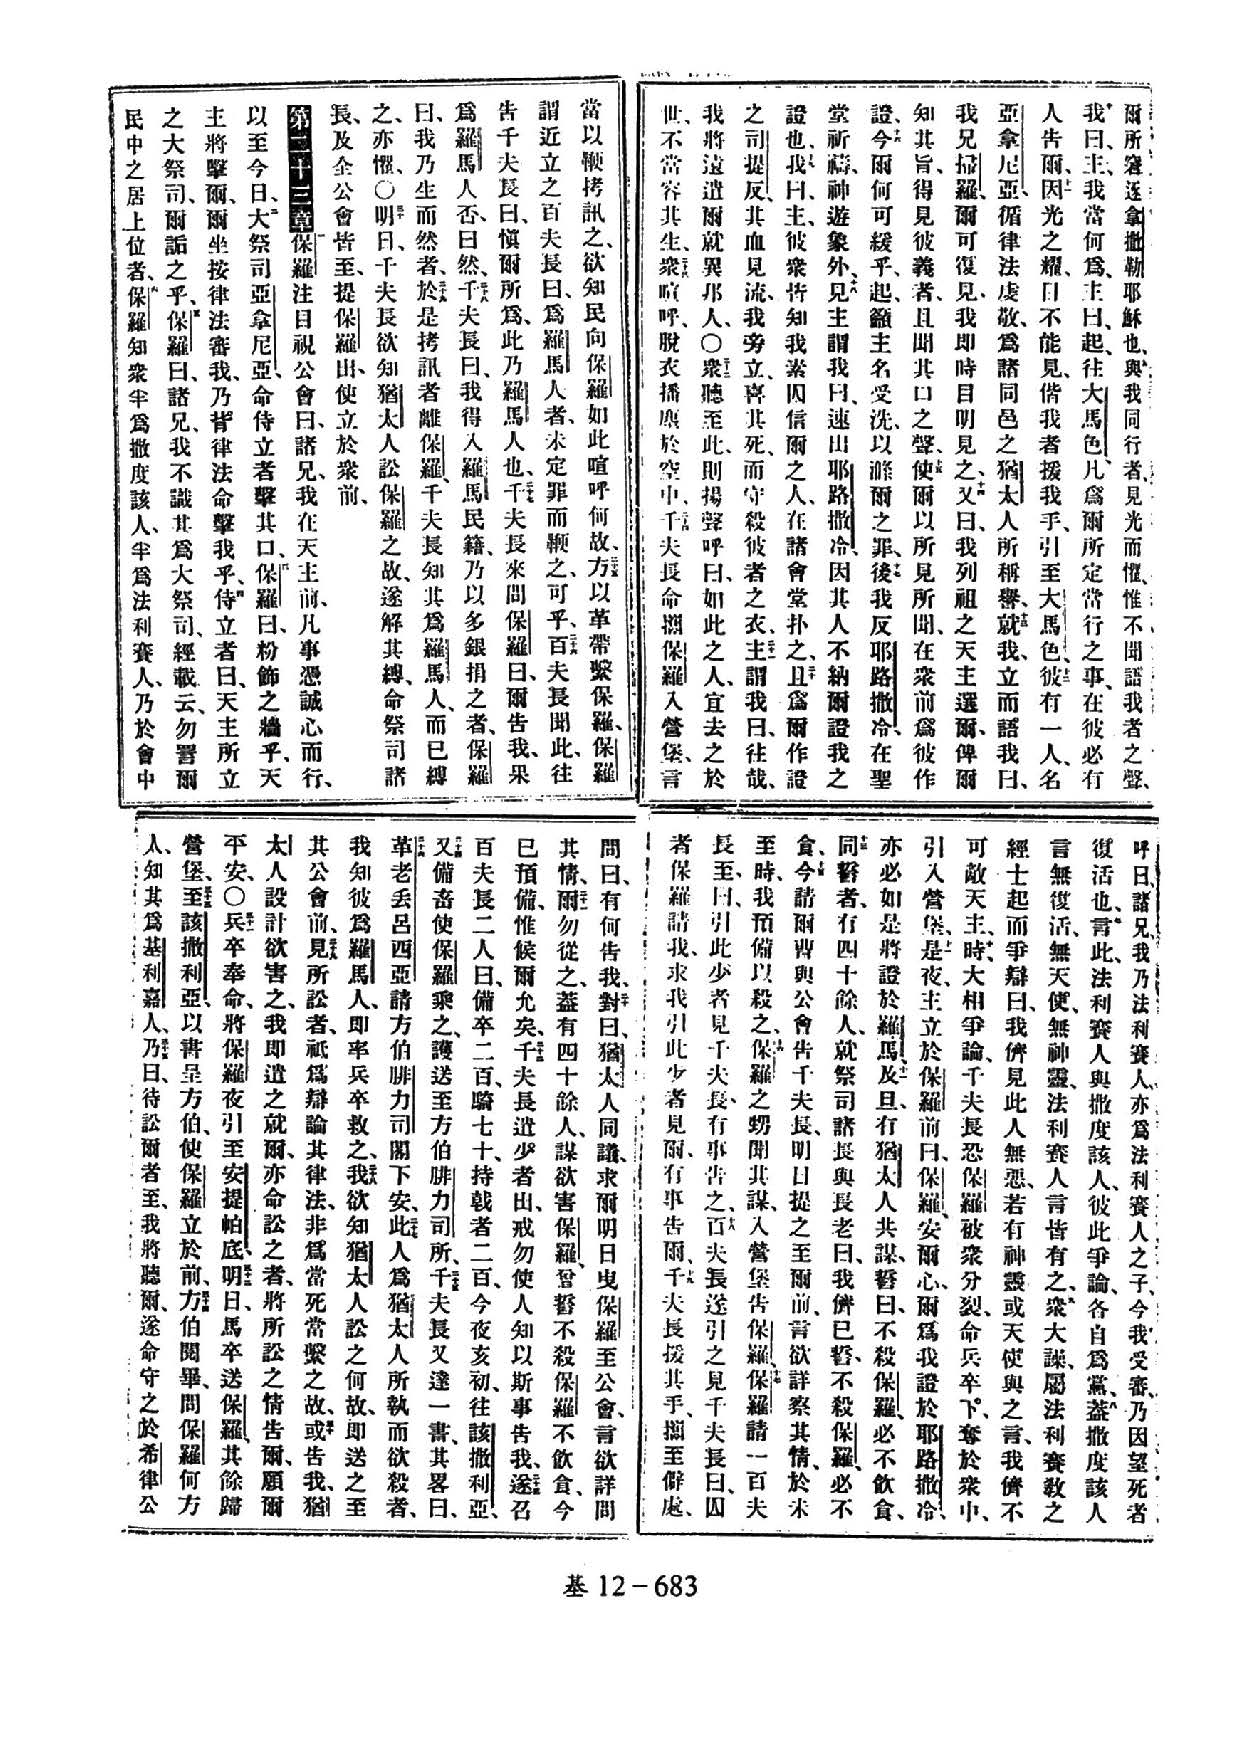 爾所窘逐拿撒勒耶穌也、與我同行者、見光而懼、惟不聞語我者之聲、
我曰、主、我當何爲、主曰、起、往大馬色、凡爲爾所定當行之事、在彼必有
人告爾、因光之耀、目不能見、偕我者援我手、引至大馬色、彼有一人、名
亞拿尼亞、循律法虔敬、爲諸同邑之猶太人所稱譽、就我立而語我曰、
我兄掃羅、爾可復見、我卽時目明見之、又曰、我列祖之天主選爾、俾爾
知其旨、得見彼義者、且聞其口之聲、使爾以所見所聞、在衆前爲彼作
證、今爾何可緩乎、起、籲主名受洗、以滌爾之罪、後我反耶路撒冷、在聖
堂祈禱、神遊象外、見主謂我曰、速出耶路撒冷、因其人不納爾證我之
證也、我曰、主、彼衆皆知我素囚信爾之人、在諸會堂扑之、且爲爾作證
之司提反、其血見流、我旁立、喜其死、而守殺彼者之衣、主謂我曰、往哉、
我將遠遣爾就異邦人、〇衆聽至此、則揚聲呼曰、如此之人、宜去之於
世、不當容其生、衆喧呼、脫衣播塵於空中、千夫長命攜保羅入營堡、言
當以鞭拷訊之、欲知民向保羅如此喧呼何故、方以革帶繫保羅、保羅
謂近立之百夫長曰、爲羅馬人者、未定罪而鞭之、可乎、百夫長聞此、往
告千夫長曰、愼爾所爲、此乃羅馬人也、千夫長來問保羅曰、爾告我、果
爲羅馬人否、曰然、千夫長曰、我得入羅馬民籍、乃以多銀捐之者、保羅
曰、我乃生而然者、於是拷訊者離保羅、千夫長知其爲羅馬人、而已縛
之、亦懼、〇明日、千夫長欲知猶太人訟保羅之故、遂解其縛、命祭司諸
長、及全公會皆至、提保羅出、使立於衆前、
第二十三章保羅注目視公會曰、諸兄、我在天主前、凡事憑誠心而行、
以至今日、大祭司亞拿尼亞、命侍立者擊其口、保羅曰、粉飾之牆乎、天
主將擊爾、爾坐按律法審我、乃背律法命擊我乎、侍立者曰、天主所立
之大祭司、爾詬之乎、保羅曰、諸兄、我不識其爲大祭司、經載云、勿詈爾
民中之居上位者、保羅知衆半爲撒度該人、半爲法利賽人、乃於會中
呼曰、諸兄、我乃法利賽人、亦爲法利賽人之子、今我受審、乃因望死者
復活也、言此、法利賽人與撒度該人、彼此爭論、各自爲黨、蓋撒度該人
言無復活、無天使、無神靈、法利賽人言皆有之、衆大譟、屬法利賽敎之
經士起而爭辯曰、我儕見此人無惡、若有神靈或天使與之言、我儕不
可敵天主、時大相爭論、千夫長恐保羅被衆分裂、命兵卒下、奪於衆中、
引入營堡、是夜、主立於保羅前曰、保羅、安爾心、爾爲我證於耶路撒冷、
亦必如是將證於羅馬、及旦、有猶太人共謀、誓曰、不殺保羅、必不飲食、
同誓者、有四十餘人、就祭司諸長與長老曰、我儕已誓、不殺保羅、必不
食、今請爾曹與公會告千夫長、明日提之至爾前、言欲詳察其情、於未
至時、我預備以殺之、保羅之甥聞其謀、入營堡告保羅、保羅請一百夫
長至、曰、引此少者見千夫長、有事告之、百夫長遂引之見千夫長曰、囚
者保羅請我、求我引此少者見爾、有事告爾、千夫長援其手、攜至僻處、
問曰、有何告我、對曰、猶太人同議、求爾明日曳保羅至公會、言欲詳問
其情、爾勿從之、蓋有四十餘人、謀欲害保羅、發誓不殺保羅不飲食、今
已預備、惟候爾允矣、千夫長遣少者出、戒勿使人知以斯事告我、遂召
百夫長二人曰、備卒二百、騎七十、持戟者二百、今夜亥初、往該撒利亞、
又備畜使保羅乘之、護送至方伯腓力司所、千夫長又達一書、其畧曰、
革老丟呂西亞、請方伯腓力司閣下安、此人爲猶太人所執而欲殺者、
我知彼爲羅馬人、卽率兵卒救之、我欲知猶太人訟之何故、卽送之至
其公會前、見所訟者、祇爲辯論其律法、非爲當死當繫之故、或告我、猶
太人設計欲害之、我卽遣之就爾、亦命訟之者、將所訟之情告爾、願爾
平安、〇兵卒奉命、將保羅夜引至安提帕底、明日、馬卒送保羅、其餘歸
營堡、至該撒利亞、以書呈方伯、使保羅立於前、方伯閱畢、問保羅何方
人、知其爲基利嘉人、乃曰、待訟爾者至、我將聽爾、遂命守之於希律公
基 12－683